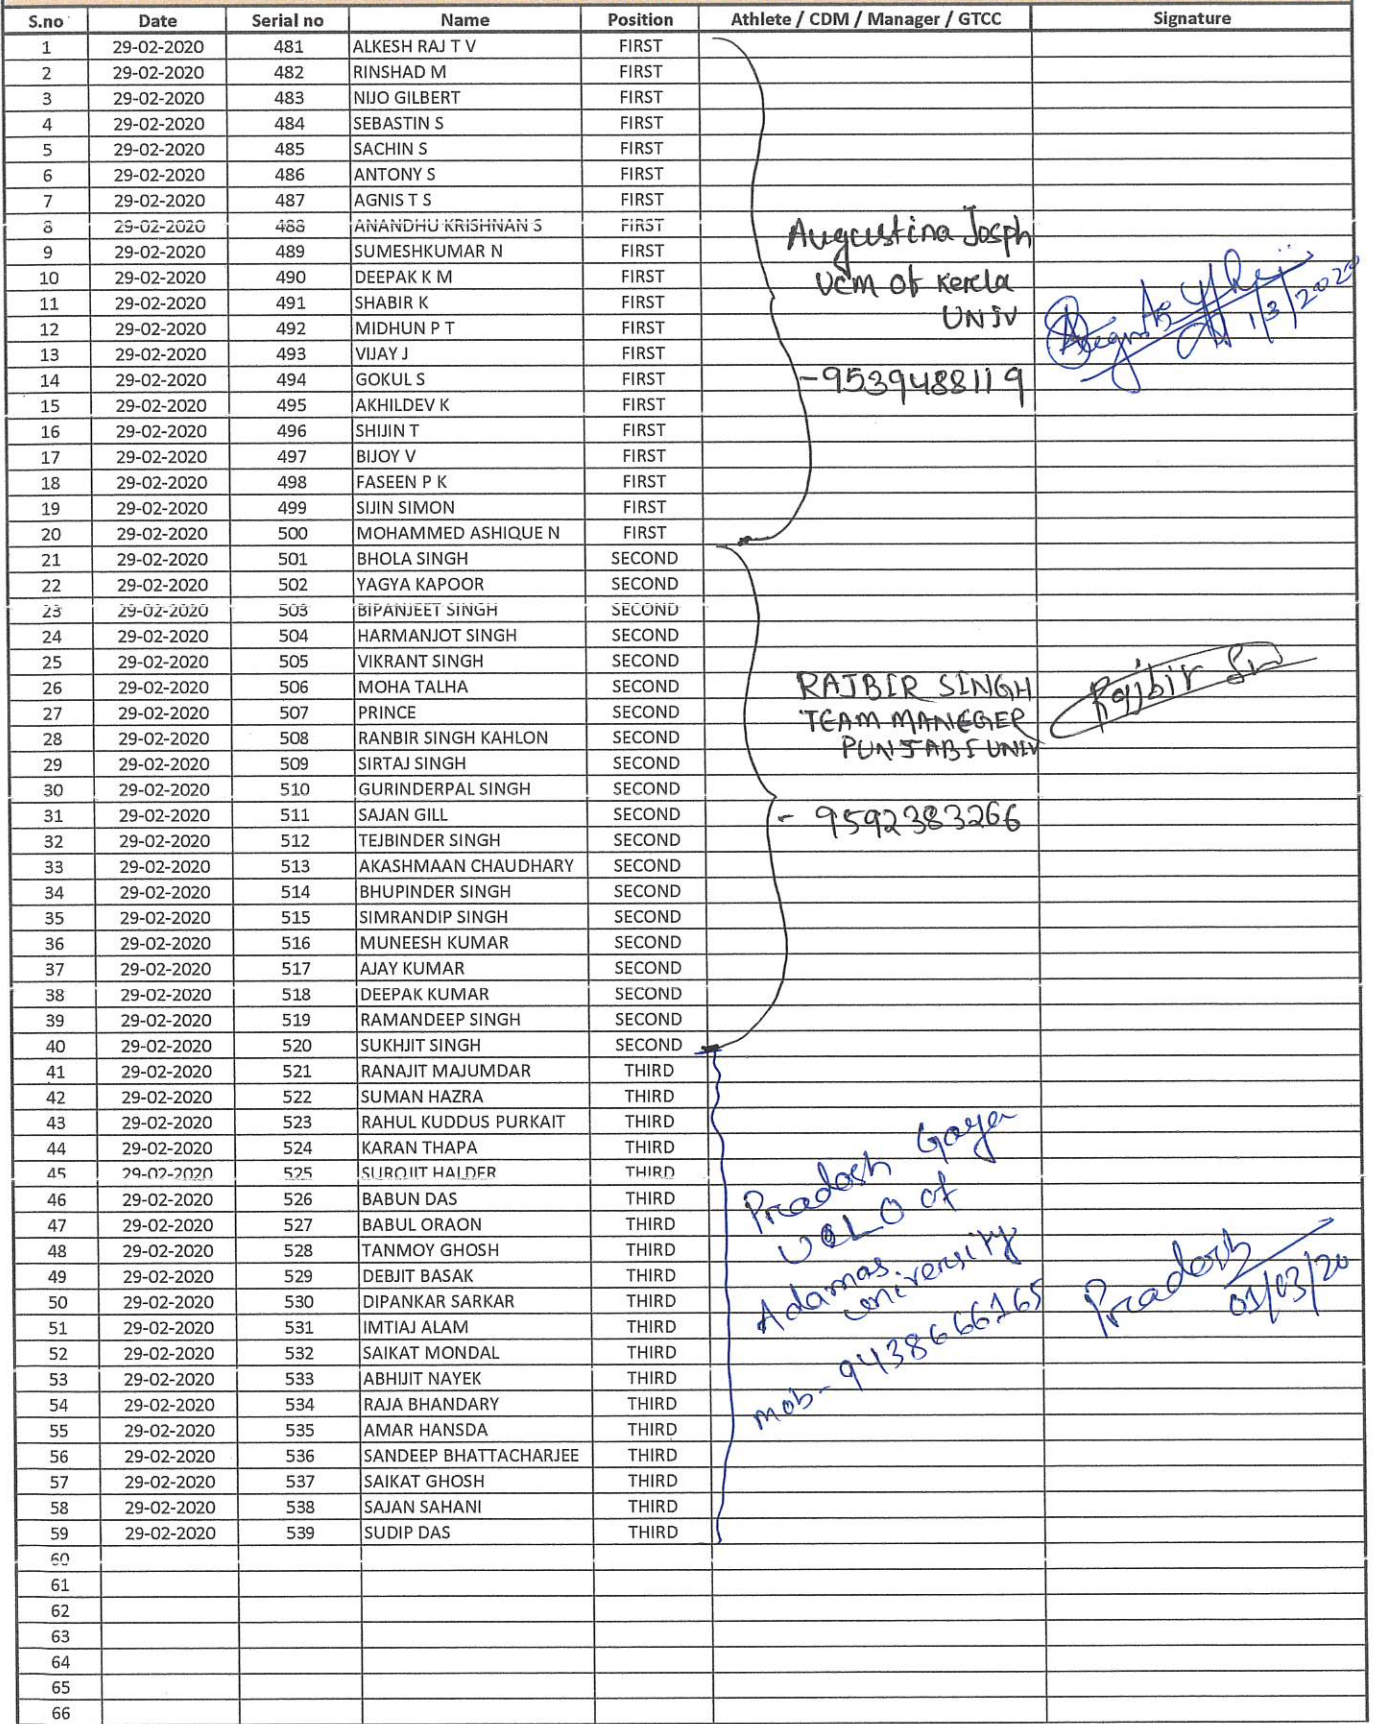 S.no Date Serial no Name Position Athlete / CDM / Manager / GTCC Signature
1 29-02-2020 481 ALKESH RAJ T V FIRST
2 29-02-2020 482 RINSHAD M FIRST
3 29-02-2020 483 NIJO GILBERT FIRST
4 29-02-2020 484 SEBASTIN S FIRST
5 29-02-2020 485 SACHIN S FIRST
6 29-02-2020 486 ANTONY S FIRST
7 29-02-2020 487 AGNIS T S FIRST
8 29-02-2020 488 ANANDHU KRISHNAN S FIRST
Augustina Josph
9 29-02-2020 489 SUMESHKUMAR N FIRST
10 29-02-2020 490 DEEPAK K M FIRST
VCM of Kerela
11 29-02-2020 491 SHABIR K FIRST
UNIV 1/3/2020
12 29-02-2020 492 MIDHUN P T FIRST
13 29-02-2020 493 VIJAY J FIRST
14 29-02-2020 494 GOKUL S FIRST -9539488119
15 29-02-2020 495 AKHILDEV K FIRST
16 29-02-2020 496 SHIJIN T FIRST
17 29-02-2020 497 BIJOY V FIRST
18 29-02-2020 498 FASEEN P K FIRST
19 29-02-2020 499 SIJIN SIMON FIRST
20 29-02-2020 500 MOHAMMED ASHIQUE N FIRST
21 29-02-2020 501 BHOLA SINGH SECOND
22 29-02-2020 502 YAGYA KAPOOR SECOND
23 29-02-2020 503 BIPANJEET SINGH SECOND
24 29-02-2020 504 HARMANJOT SINGH SECOND
25 29-02-2020 505 VIKRANT SINGH SECOND
26 29-02-2020 506 MOHA TALHA SECOND RAJBIR SINGH Rajbir
27 29-02-2020 507 PRINCE SECOND TEAM MANEGER
28 29-02-2020 508 RANBIR SINGH KAHLON SECOND PUNJABI UNIV
29 29-02-2020 509 SIRTAJ SINGH SECOND
30 29-02-2020 510 GURINDERPAL SINGH SECOND
31 29-02-2020 511 SAJAN GILL SECOND - 9592383266
32 29-02-2020 512 TEJBINDER SINGH SECOND
33 29-02-2020 513 AKASHMAAN CHAUDHARY SECOND
34 29-02-2020 514 BHUPINDER SINGH SECOND
35 29-02-2020 515 SIMRANDIP SINGH SECOND
36 29-02-2020 516 MUNEESH KUMAR SECOND
37 29-02-2020 517 AJAY KUMAR SECOND
38 29-02-2020 518 DEEPAK KUMAR SECOND
39 29-02-2020 519 RAMANDEEP SINGH SECOND
40 29-02-2020 520 SUKHJIT SINGH SECOND
41 29-02-2020 521 RANAJIT MAJUMDAR THIRD
42 29-02-2020 522 SUMAN HAZRA THIRD
43 29-02-2020 523 RAHUL KUDDUS PURKAIT THIRD
44 29-02-2020 524 KARAN THAPA THIRD
45 29-02-2020 525 SUROJIT HALDER THIRD
Pradosh Gayen
46 29-02-2020 526 BABUN DAS THIRD
47 29-02-2020 527 BABUL ORAON THIRD
of
48 29-02-2020 528 TANMOY GHOSH THIRD
49 29-02-2020 529 DEBJIT BASAK THIRD
Adamas university
Pradosh
01/03/20
50 29-02-2020 530 DIPANKAR SARKAR THIRD
51 29-02-2020 531 IMTIAJ ALAM THIRD
52 29-02-2020 532 SAIKAT MONDAL THIRD
53 29-02-2020 533 ABHIJIT NAYEK THIRD
mob-9438666165
54 29-02-2020 534 RAJA BHANDARY THIRD
55 29-02-2020 535 AMAR HANSDA THIRD
56 29-02-2020 536 SANDEEP BHATTACHARJEE THIRD
57 29-02-2020 537 SAIKAT GHOSH THIRD
58 29-02-2020 538 SAJAN SAHANI THIRD
59 29-02-2020 539 SUDIP DAS THIRD
60
61
62
63
64
65
66